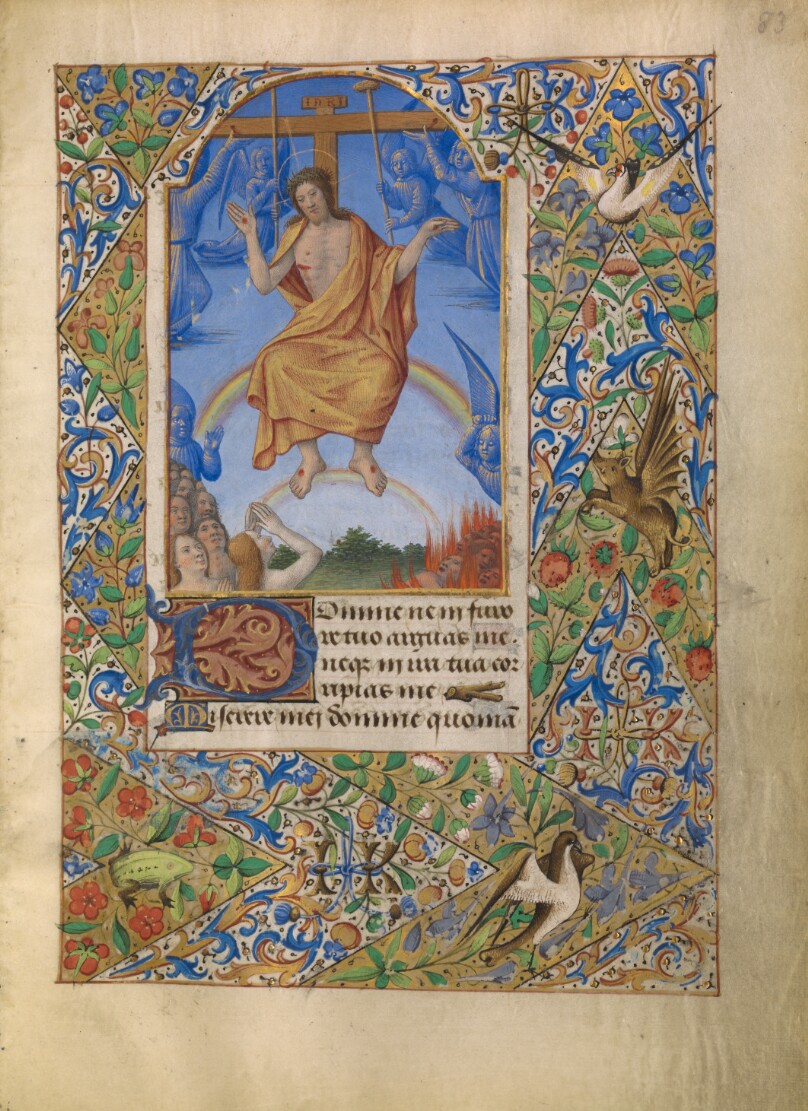 83
INRI
Domine ne in furo
re tuo arguas me.
neqz in ira tua cor
ripias me
Miserere mei domine quoniā
I K
I K
I K